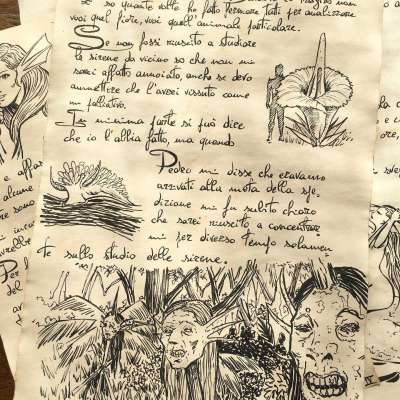 so quante volte ho fatto fermare tutti per analizzare
vuoi quel fiore, vuoi quell'animale particolare.
Se non fossi riuscito a studiare
le sirene da vicino so che non mi
sarei affatto annoiato, anche se devo
ammettere che l'avrei vissuto come
un palliativo.
In minima parte si può dire
che io l'abbia fatto, ma quando
Pedro mi disse che eravamo
arrivati alla metà della spe-
dizione mi fu subito chiaro
che sarei riuscito a concentrar
mi per diverso tempo solamen-
te sullo studio delle sirene.
e affas
alcune